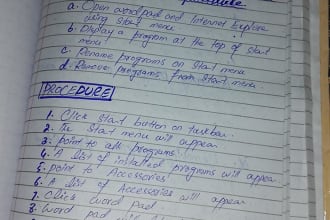 a. Open wordpad and Internet Explore
using start menu
b. Display a program at the top of start
menu
c. Rename programs on start menu
d. Remove programs from start menu.
PROCEDURE
1. Click start button on taskbar.
2. The start menu will appear
3. point to all programs.
4. A list of installed programs will appear
5. point to Accessories
6. A list of Accessories will appear
7. Click word pad.
8. word pad